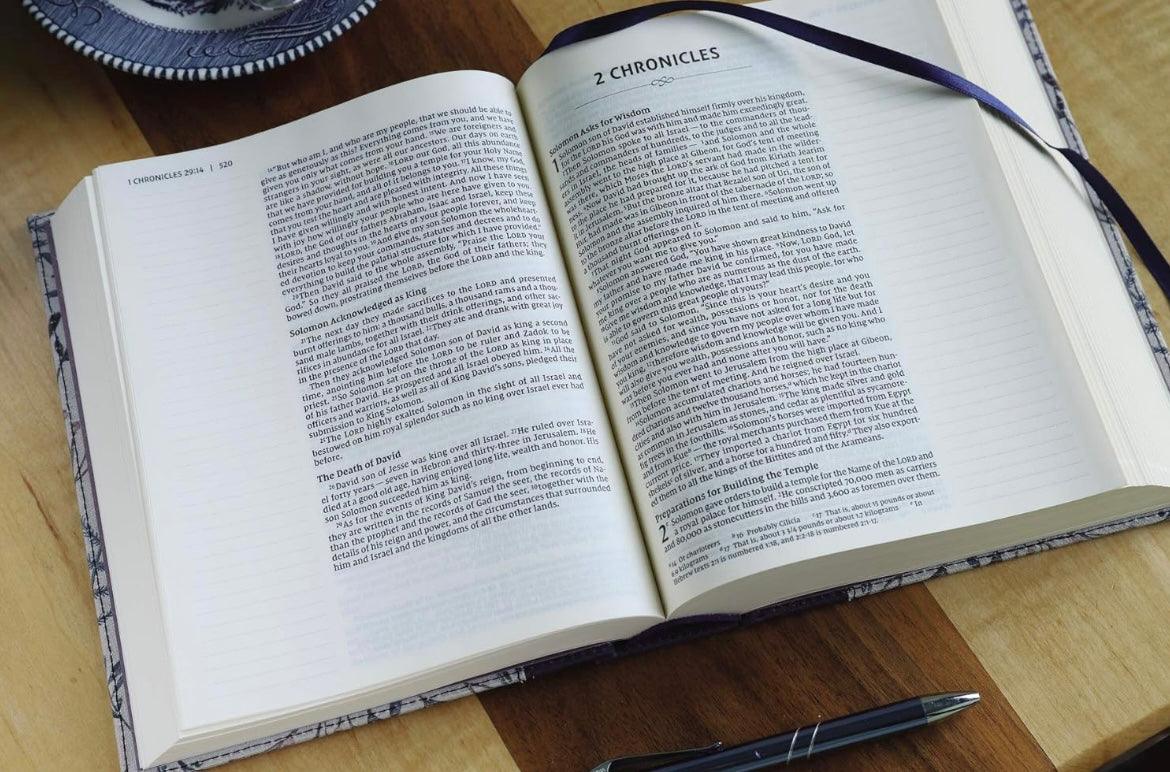 1 CHRONICLES 29:14 | 520
14 "But who am I, and who are my people, that we should be able to
give as generously as this? Everything comes from you, and we have
given you only what comes from your hand. 15 We are foreigners and
strangers in your sight, as were all our ancestors. Our days on earth
are like a shadow, without hope. 16 LORD our God, all this abundance
that we have provided for building you a temple for your Holy Name
comes from your hand, and all of it belongs to you. 17 I know, my God,
that you test the heart and are pleased with integrity. All these things
I have given willingly and with honest intent. And now I have seen
with joy how willingly your people who are here have given to you.
18 LORD, the God of our fathers Abraham, Isaac and Israel, keep these
desires and thoughts in the hearts of your people forever, and keep
their hearts loyal to you. 19 And give my son Solomon the wholeheart-
ed devotion to keep your commands, statutes and decrees and to do
everything to build the palatial structure for which I have provided."
20 Then David said to the whole assembly, "Praise the LORD your
God." So they all praised the LORD, the God of their fathers; they
bowed down, prostrating themselves before the LORD and the king.
Solomon Acknowledged as King
21 The next day they made sacrifices to the LORD and presented
burnt offerings to him: a thousand bulls, a thousand rams and a thou-
sand male lambs, together with their drink offerings, and other sac-
rifices in abundance for all Israel. 22 They ate and drank with great joy
in the presence of the LORD that day.
Then they acknowledged Solomon son of David as king a second
time, anointing him before the LORD to be ruler and Zadok to be
priest. 23 So Solomon sat on the throne of the LORD as king in place
of his father David. He prospered and all Israel obeyed him. 24 All the
officers and warriors, as well as all of King David's sons, pledged their
submission to King Solomon.
25 The LORD highly exalted Solomon in the sight of all Israel and
bestowed on him royal splendor such as no king over Israel ever had
before.
The Death of David
26 David son of Jesse was king over all Israel. 27 He ruled over Isra-
el forty years — seven in Hebron and thirty-three in Jerusalem. 28 He
died at a good old age, having enjoyed long life, wealth and honor. His
son Solomon succeeded him as king.
29 As for the events of King David's reign, from beginning to end,
they are written in the records of Samuel the seer, the records of Na-
than the prophet and the records of Gad the seer, 30 together with the
details of his reign and power, and the circumstances that surrounded
him and Israel and the kingdoms of all the other lands.
2 CHRONICLES
Solomon Asks for Wisdom
1 Solomon son of David established himself firmly over his kingdom,
for the LORD his God was with him and made him exceedingly great.
2 Then Solomon spoke to all Israel — to the commanders of thou-
sands and commanders of hundreds, to the judges and to all the lead-
ers in Israel, the heads of families — 3 and Solomon and the whole
assembly went to the high place at Gibeon, for God's tent of meeting
was there, which Moses the LORD's servant had made in the wilder-
ness. 4 Now David had brought up the ark of God from Kiriath Jearim
to the place he had prepared for it, because he had pitched a tent for
it in Jerusalem. 5 But the bronze altar that Bezalel son of Uri, the son of
Hur, had made was in Gibeon in front of the tabernacle of the LORD; so
Solomon and the assembly inquired of him there. 6 Solomon went up
to the bronze altar before the LORD in the tent of meeting and offered
a thousand burnt offerings on it.
7 That night God appeared to Solomon and said to him, "Ask for
whatever you want me to give you."
8 Solomon answered God, "You have shown great kindness to David
my father and have made me king in his place. 9 Now, LORD God, let
your promise to my father David be confirmed, for you have made
me king over a people who are as numerous as the dust of the earth.
10 Give me wisdom and knowledge, that I may lead this people, for who
is able to govern this great people of yours?"
11 God said to Solomon, "Since this is your heart's desire and you
have not asked for wealth, possessions or honor, nor for the death
of your enemies, and since you have not asked for a long life but for
wisdom and knowledge to govern my people over whom I have made
you king, 12 therefore wisdom and knowledge will be given you. And I
will also give you wealth, possessions and honor, such as no king who
was before you ever had and none after you will have."
13 Then Solomon went to Jerusalem from the high place at Gibeon,
from before the tent of meeting. And he reigned over Israel.
14 Solomon accumulated chariots and horses; he had fourteen hun-
dred chariots and twelve thousand horses,a which he kept in the chariot
cities and also with him in Jerusalem. 15 The king made silver and gold
as common in Jerusalem as stones, and cedar as plentiful as sycamore-
fig trees in the foothills. 16 Solomon's horses were imported from Egypt
and from Kueb — the royal merchants purchased them from Kue at the
current price. 17 They imported a chariot from Egypt for six hundred
shekelsc of silver, and a horse for a hundred and fifty.d They also export-
ed them to all the kings of the Hittites and of the Arameans.
Preparations for Building the Temple
2 Solomon gave orders to build a temple for the Name of the LORD and
a royal palace for himself. 2 He conscripted 70,000 men as carriers
and 80,000 as stonecutters in the hills and 3,600 as foremen over them.
a 14 Or charioteers b 16 Probably Cilicia c 17 That is, about 15 pounds or about
6.9 kilograms d 17 That is, about 3 3/4 pounds or about 1.7 kilograms e In
Hebrew texts 2:1 is numbered 1:18, and 2:2-18 is numbered 2:1-17.